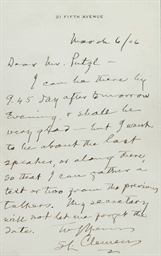 21 FIFTH AVENUE
March 6/06
Dear Mr.
I can be there by
9.45 day after to-morrow
evening, & shall be
very glad — but I want
to be about the last
speaker, or along there,
so that I can gather a
text or two from the previous
talkers. My secretary
will not let me forget the
date.
SL Clemens